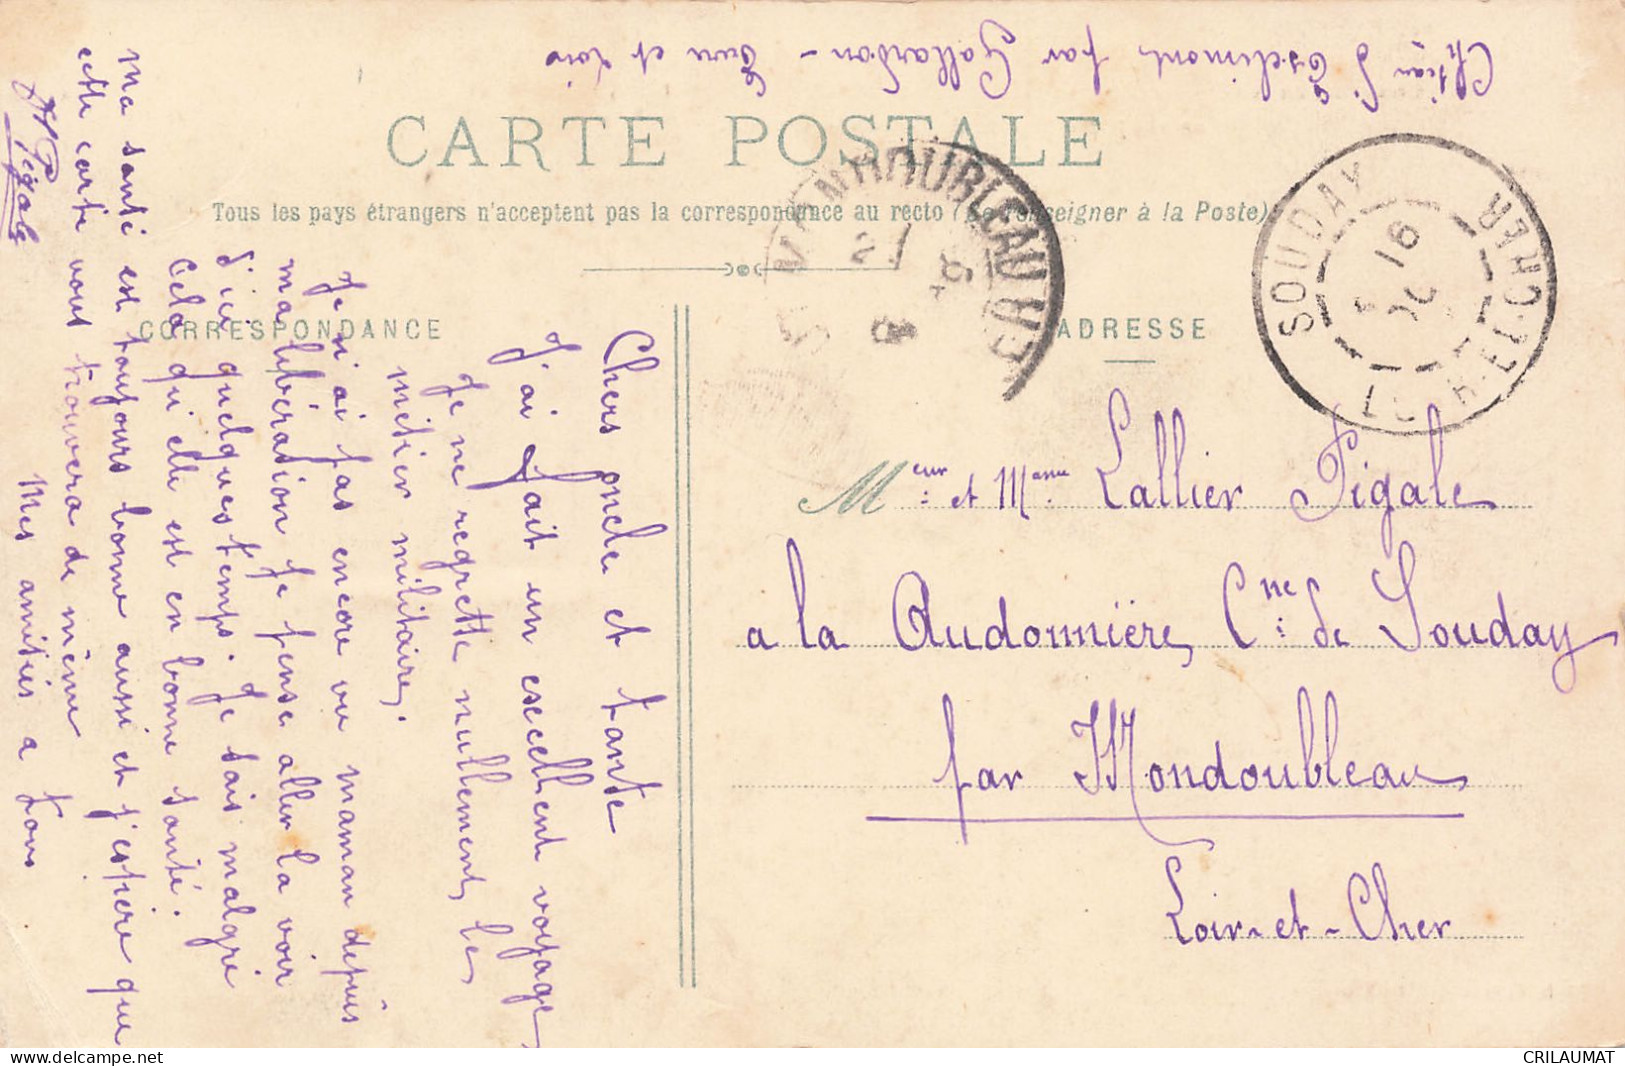 Château d'Esclimont par Gallardon - Eure et Loir
CARTE POSTALE
Tous les pays étrangers n'acceptent pas la correspondance au recto (Se renseigner à la Poste)
CORRESPONDANCE
ADRESSE
SOUDAY
LOIR-ET-CHER
16
MONDOUBLEAU
Chers oncle et tante
J'ai fait un escellent voyage
Je ne regrette nullement le
métier militaire.
Je n'ai pas encore vu maman depuis
ma libération je pense aller la voir
d'ici quelques temps. Je sais malgré
cela qu'elle est en bonne santé.
Ma santé est toujours bonne aussi et j'espère que
cette carte vous trouvera de même
Mes amitiés a tous
Pigale
Meur et Mame Lallier Pigale
a la Audonnière, Cne de Souday
par Mondoubleau
Loir-et-Cher
www.delcampe.net
CRILAUMAT